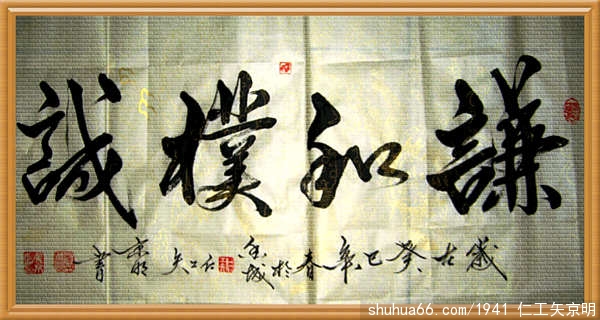 謙和樸誠
歲在癸巳年春於城仁工矢京明書
shuhua66.com/1941 仁工矢京明